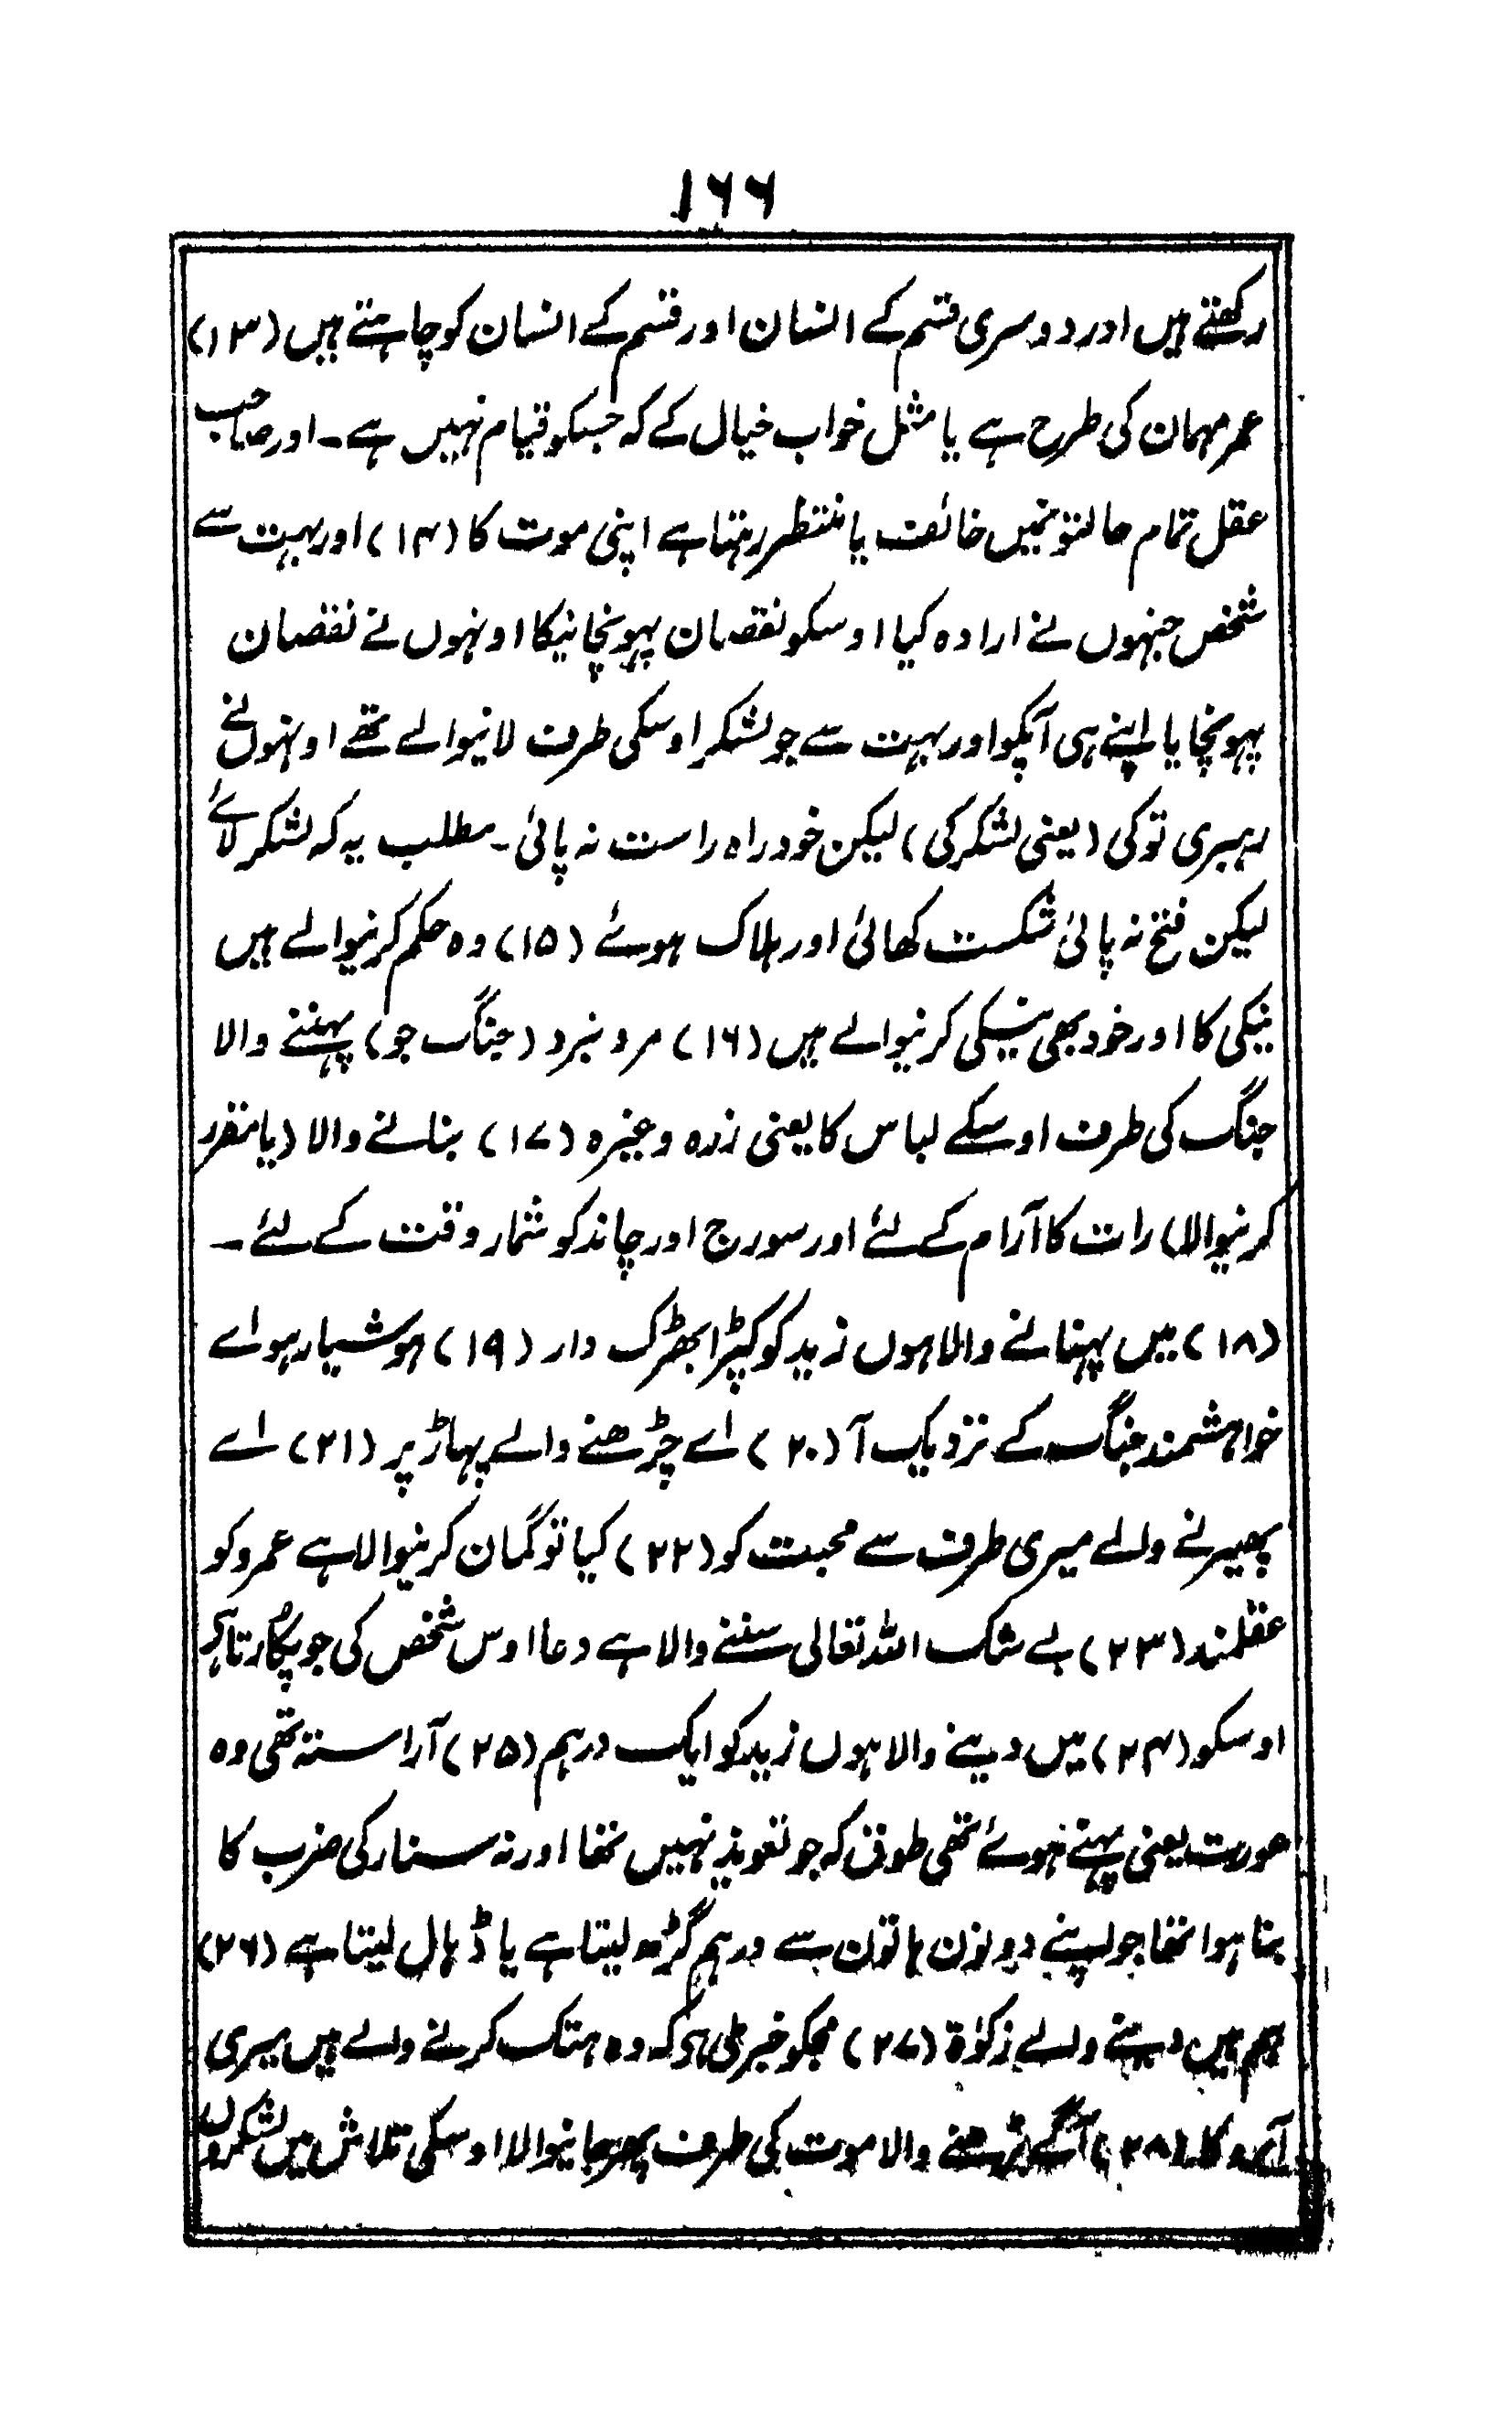 ۱۶۶
رکھتے ہیں اور دوسری قسم کے انسان اور قسم کے انسان کو چاہتے ہیں (۱۳)
عمر مہمان کی طرح ہے یا مثل خواب خیال کے کہ جسکو قیام نہیں ہے۔ اور صاحب
عقل تمام حالتونمیں خائف یا منتظر رہتا ہے اپنی موت کا (۱۴) اور بہت سے
شخص جنہوں نے ارادہ کیا اوسکو نقصان پہونچانیکا اونہوں نے نقصان
پہونچایا اپنے ہی آپکو اور بہت سے جو لشکر اوسکی طرف لانیوالے تھے اونہوں نے
رہبری تو کی (یعنی لشکر کی) لیکن خود راہ راست نہ پائی۔ مطلب یہ کہ لشکر لائے
لیکن فتح نہ پائی شکست کھائی اور ہلاک ہوئے (۱۵) وہ حکم کرنیوالے ہیں
نیکی کا اور خود بھی نیکی کرنیوالے ہیں (۱۶) مرد نبرد (جنگ جو) پہننے والا
جنگ کی طرف اوسکے لباس کا یعنی زرہ وغیرہ (۱۷) بنانے والا (یا مقرر
کرنیوالا) رات کا آرام کے لئے اور سورج اور چاند کو شمار وقت کے لئے ۔
(۱۸) میں پہنانے والا ہوں زید کو کپڑا بھڑک دار (۱۹) ہوشیار ہو اے
خواہشمند جنگ کے نزدیک آ (۲۰) اے چڑھنے والے پہاڑ پر (۲۱) اے
پھیرنے والے میری طرف سے محبت کو (۲۲) کیا تو گمان کرنیوالا ہے عمرو کو
عقلمند (۲۳) بے شک اللہ تعالی سننے والا ہے دعا اوس شخص کی جو پکارتا ہے
اوسکو (۲۴) میں دینے والا ہوں زید کو ایک درہم (۲۵) آراستہ تھی وہ
عورت یعنی پہنے ہوئے تھی طوق کہ جو تعویذ نہیں تھا اور نہ سنار کی ضرب کا
بنا ہوا تھا جو اپنے دونوں ہاتوں سے درہم گڑھ لیتا ہے یا ڈہال لیتا ہے (۲۶)
ہم ہیں دینے والے زکوٰۃ (۲۷) مجکو خبر ملی ہو کہ وہ ہتک کرنے والے ہیں میری
آبرو کا (۲۸) آگے بڑھنے والا موت کی طرف پھر جانیوالا اوسکی تلاش میں لشکروں